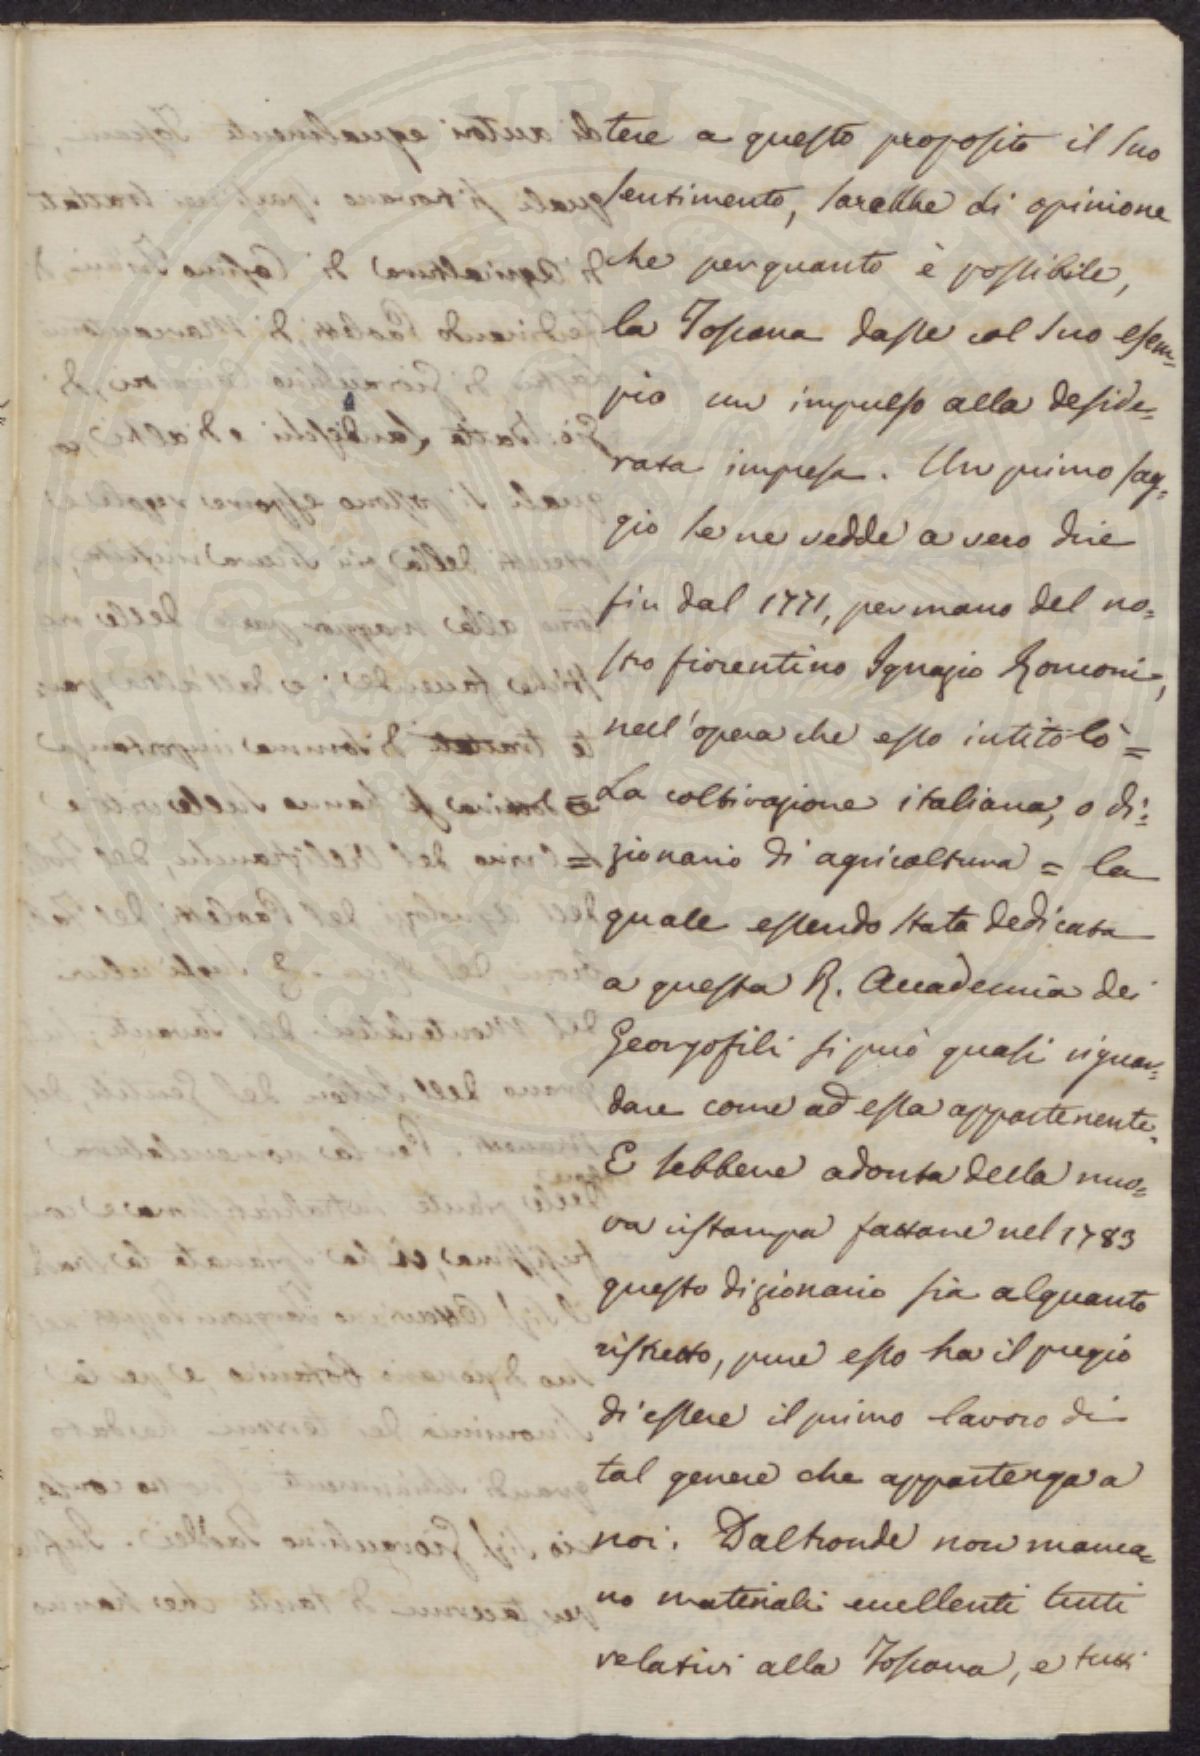 tere a questo proposito il suo
sentimento, sarebbe di opinione
che per quanto è possibile,
la Toscana dasse col suo esem=
pio un impulso alla deside=
rata impresa. Un primo sag=
gio se ne vedde a vero dire
fin dal 1771, per mano del no=
stro fiorentino Ignazio Ronconi,
nell'opera che esso intitolò =
La coltivazione italiana, o di=
zionario di agricoltura = la
quale essendo stata dedicata
a questa R. Accademia dei
Georgofili si può quasi riguar=
dare come ad essa appartenente.
E sebbene adonta della nuo=
va ristampa fattane nel 1783
questo dizionario sia alquanto
ristretto, pure esso ha il pregio
di essere il primo lavoro di
tal genere che appartenga a
noi. Daltronde non manca=
no materiali eccellenti tutti
relativi alla Toscana, e tutti